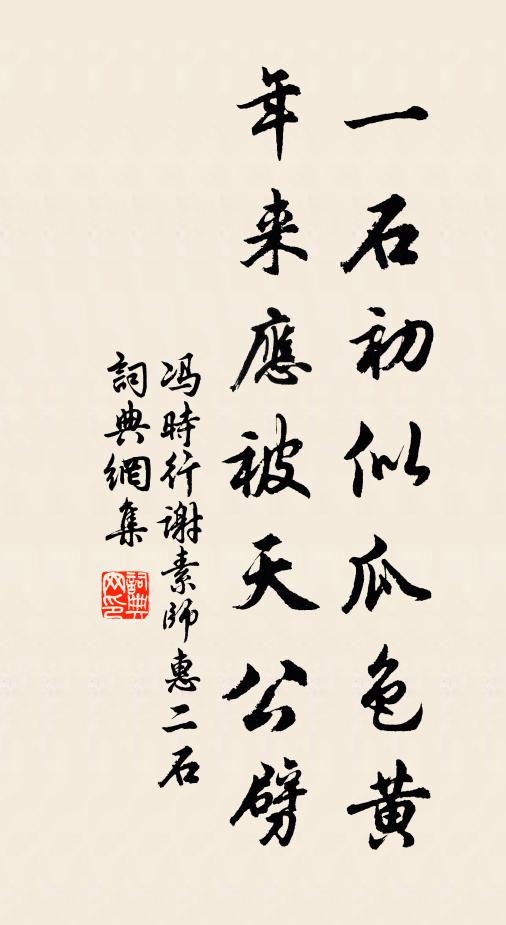 一石初似瓜色黄
年来應被天公劈
冯時行谢素師惠二石
詞典網集
詞典网印